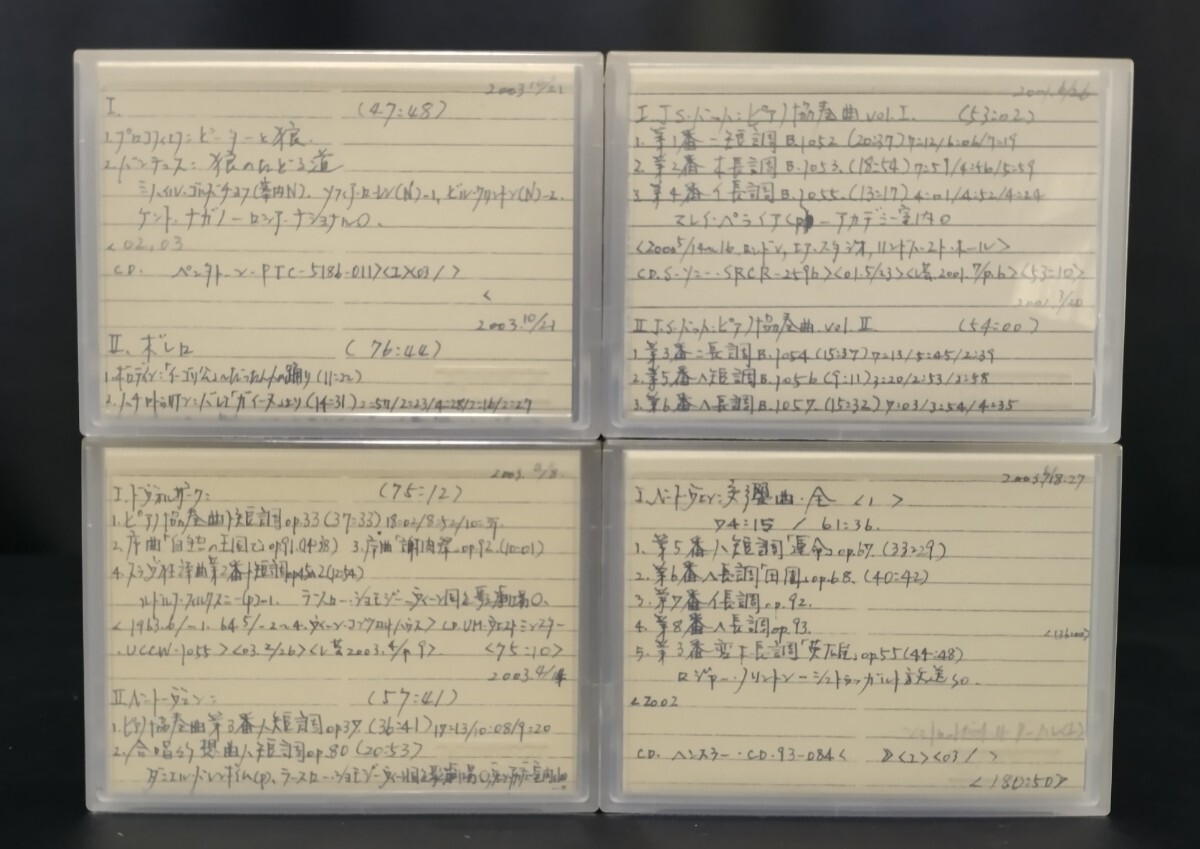 2003.10/21
I. (47:48)
1.プロコフィエフ:ピーターと狼.
2.バンテュス:狼のたどる道
ミハイル・ゴルバチョフ(案内N).ソフィア・ローレン(N)-1,ビル・クリントン(N)-2.
ケント・ナガノーロシア・ナショナルO.
<02,03
CD. ペンタトーン-PTC-5186-011><I><03/ >
<
2003.10/21
II. ボレロ (76:44)
1.ボロディン:「イーゴリ公」〜だったん人の踊り(11:22)
2.ハチャトゥリアン:バレエ「ガイーヌ」より(14:31)2:57/2:23/4:28/2:16/2:27
2001.6/26
I J.S.バッハ:ピアノ協奏曲 vol.I. (53:02)
1.第1番ニ短調 B.1052 (20:37)7:12/6:06/7:19
2.第2番ホ長調 B.1053.(18:54)7:59/4:46/5:59
3.第4番イ長調 B.1055.(13:17)4:01/4:52/4:24
マレイ・ペライア(p)-アカデミー室内O
<2000 5/14〜16.ロンドン,エア・スタジオ,リンドハースト・ホール>
CD.S・ソニー・SRCR-2596><01.5/23><レ芸.2001.7/p.6><53:10>
2001.7/20
II J.S.バッハ:ピアノ協奏曲 vol.II (54:00)
1.第3番ニ長調 B.1054 (15:37)7:13/5:45/2:39
2.第5番ヘ短調 B.1056 (9:11)3:20/2:53/2:58
3.第6番ヘ長調 B.1057.(15:32)7:03/3:54/4:35
I.ドヴォルザーク: (75:12)
1.ピアノ協奏曲ト短調 op.33 (37:33)18:02/8:52/10:39.
2.序曲「自然の王国で」op.91. 3.序曲「謝肉祭」op.92.(10:01)
4.スラヴ狂詩曲第2番ト短調 op.45-2(12:54)
ルドルフ・フィルクスニー(p)-1. ラースロー・ショモジーーウィーン国立歌劇場O.
<1963.6/-1. 64.5/-2〜4.ウィーン・コンツェルトハウス>CD.UM・ウエストミンスター
.UCCW-1055><03.2/26><レ芸2003.4/p.9> <75:10>
2003.4/14
II ベートーヴェン: (57:41)
1.ピアノ協奏曲第3番ハ短調 op.37.(36:41)17:13/10:08/9:20
2.合唱幻想曲ハ短調 op.80 (20:53)
ダニエル・バレンボイム(p).ラースロー・ショモジーーウィーン国立歌劇場O,
I.ベートーヴェン:交響曲・全 <1>
74:15 / 61:36.
1.第5番ハ短調「運命」op.67.(33:29)
2.第6番ヘ長調「田園」op.68.(40:42)
3.第7番イ長調 op.92.
4.第8番ヘ長調 op.93. <136:00>
5.第3番変ホ長調「英雄」op.55(44:48)
ロジャー・ノリントンーシュトゥットガルト放送SO.
<2002
CD. ヘンスラー・CD-93-084< ><I><03/ >
<180:50>